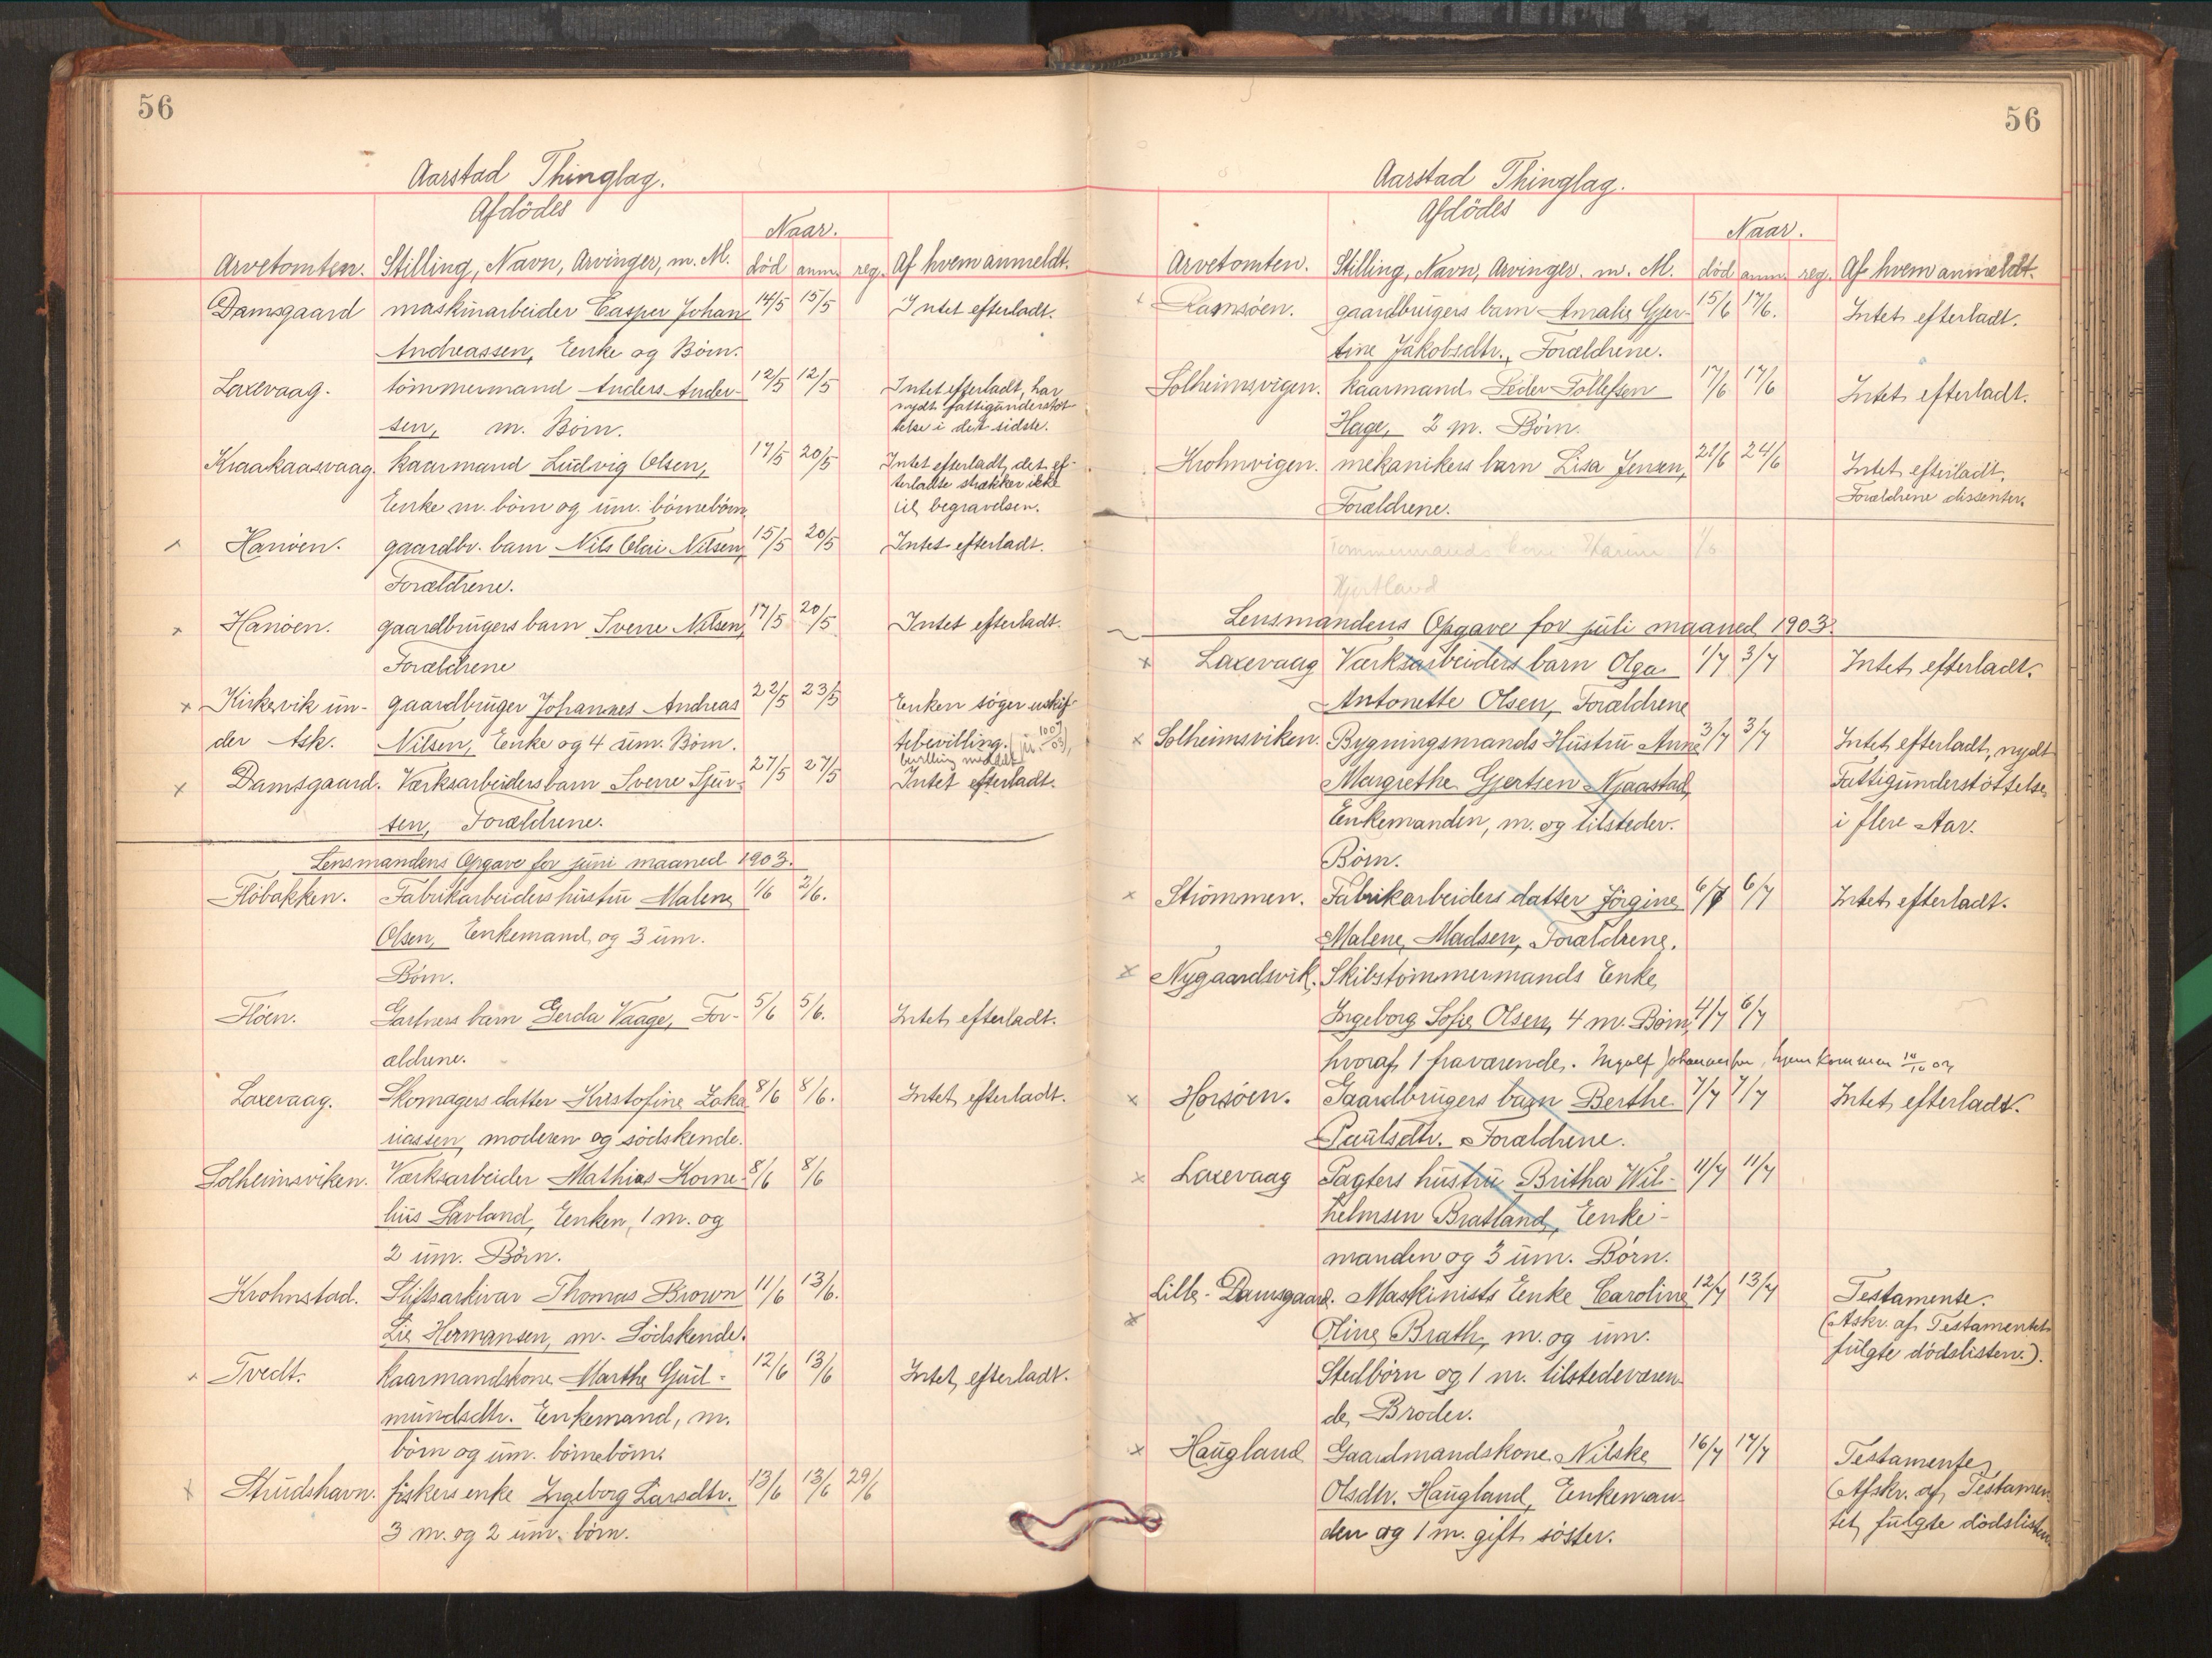 56
Aarstad Thinglag.
Afdödes
Naar.
Arvetomten. Stilling, Navn, Arvinger, m. M. död anm. reg. Af hvem anmeldt.
Damsgaard maskinarbeider Casper Johan 14/5 15/5 Intet efterladt.
Andreassen, Enke og Börn.
Laxevaag. tömmermand Anders Ander- 12/5 12/5 Intet efterladt, har
nydt fattigunderstöt-
sen, m. Börn. telse i det sidste.
Kraakaasvaag. Kaarmand Ludvig Olsen, 17/5 20/5 Intet efterladt, det ef-
terladte strækker ikke
Enke m. börn og um. börnebörn. til begravelsen.
Hanöen. gaardbr. barn Nils Olai Nilsen, 15/5 20/5 Intet efterladt.
Forældrene.
Hanöen. gaardbrugers barn Sverre Nilsen, 17/5 20/5 Intet efterladt.
Forældrene
Kirkevik un- gaardbruger Johannes Andreas 22/5 23/5 Enken söger uskif-
der Ask. Nilsen, Enke og 4 um. Börn. tebevilling.
Damsgaard. Værksarbeiders barn Sverre Sjur- 27/5 27/5 Intet efterladt.
sen, Forældrene.
Lensmandens Opgave for juni maaned 1903.
Flöbakken. Fabrikarbeiders hustru Malene 1/6 2/6.
Olsen, Enkemand og 3 um.
Börn.
Flöen. Gartners barn Gerda Vaage, For- 5/6 5/6. Intet efterladt.
ældrene.
Laxevaag. Skomagers datter Kristofine Zaka- 8/6 8/6. Intet efterladt.
riassen, moderen og södskende.
Solheimsviken. Værksarbeider Mathias Korne- 8/6 8/6
lius Lavland, Enken, 1 m. og
2 um. Börn.
Krohnstad. Stiftsarkivar Thomas Brown 11/6 13/6.
Lie Hermansen, m. Södskende.
Tvedt. Kaarmandskone Marthe Gud- 12/6 13/6 Intet efterladt.
mundsdtr. Enkemand, m.
börn og um. börnebörn.
Studshavn. fiskers enke Ingeborg Larsdtr. 13/6 13/6 29/6
3 m. og 2 um. börn.
56
Aarstad Thinglag.
Afdödes
Naar.
Arvetomten. Stilling, Navn, Arvinger. m. M. död anm. reg. Af hvem anmeldt.
Ramsöen. gaardbrugers barn Amalie Gjer- 15/6 17/6. Intet efterladt.
tine Jakobsdtr., Forældrene.
Solheimsvigen. Kaarmand Peder Tollefsen 17/6 17/6 Intet efterladt.
Hage, 2 m. Börn.
Krohnvigen. mekanikers barn Lisa Jensen, 21/6 24/6 Intet efterladt.
Forældrene. Forældrene dissenter.
Tömmermands barn
Lensmandens Opgave for juli maaned 1903.
Laxevaag Værksarbeiders barn Olga 1/7 3/7 Intet efterladt.
Antonette Olsen, Forældrene
Solheimsviken. Bygningsmands Hustru Anne 3/7 3/7 Intet efterladt, nydt
Margrethe Gjertsen Njaastad, Fattigunderstöttelse
Enkemanden, m. og tilstedev. i flere Aar.
Börn.
Strömmen. Fabrikarbeiders datter Jörgine 6/7 6/7 Intet efterladt.
Malene Madsen, Forældrene.
Nygaardsvik. Skibstömmermands Enke
Ingeborg Sofie Olsen, 4 m. Börn, 4/7 6/7
hvoraf 1 fraværende.
Horsöen. Gaardbrugers barn Berthe 7/7 7/7 Intet efterladt.
Paulsdtr. Forældrene.
Laxevaag Pagters hustru Britha Wil- 11/7 11/7
helmsen Bratland, Enke-
manden og 3 um. Börn.
Lille-Damsgaard. Maskinists Enke Caroline 12/7 13/7 Testamente.
Oline Brath, m. og um. (Afskr. af Testamentet
fulgte dödslisten.).
Stedbörn og 1 m. tilstedeværen-
de Broder.
Haugland Gaardmandskone Nilske 16/7 17/7 Testamente
Olsdtr. Haugland, Enkeman- (Afskr. af Testamen-
den og 1 m. gift söster. tet fulgte dödslisten.